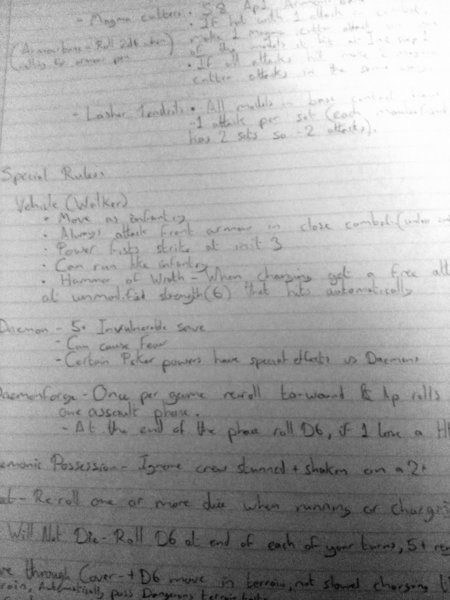 - Magma cutters • S8 Ap1, Armourbane
• If hit with 1 attack
(Armourbane - Roll 2d6 when make 1 magma cutter attack
rolling for armour pen) of the models at Init step 1
• If all attacks hit make 2
cutter attacks in the same
- Lasher Tendrils • All models in base contact
-1 attack per set (each Maulerfiend
has 2 sets so -2 attacks).
Special Rules
Vehicle (Walker)
• Move as infantry
• Always attack front armour in close combat (unless
• Power fists strike at init 3
• Can run like infantry
• Hammer of Wrath - When charging get a free
at unmodified strength (6) that hits automatically
Daemon - 5+ Invulnerable save
- Can cause Fear
- Certain Psker powers have special effects vs Daemons
Daemonforge - Once per game reroll to-wound & Ap rolls
one assault phase.
- At the end of the phase roll D6, if 1 lose a H
emonic Possession - Ignore crew stunned + shaken on a 2+
- Re roll one or more dice when running or charging
Will Not Die - Roll D6 at end of each of your turns, 5+
ve through Cover - +D6 move in terrain, not slowed charging
rain, Automatically pass Dangerous terrain tests